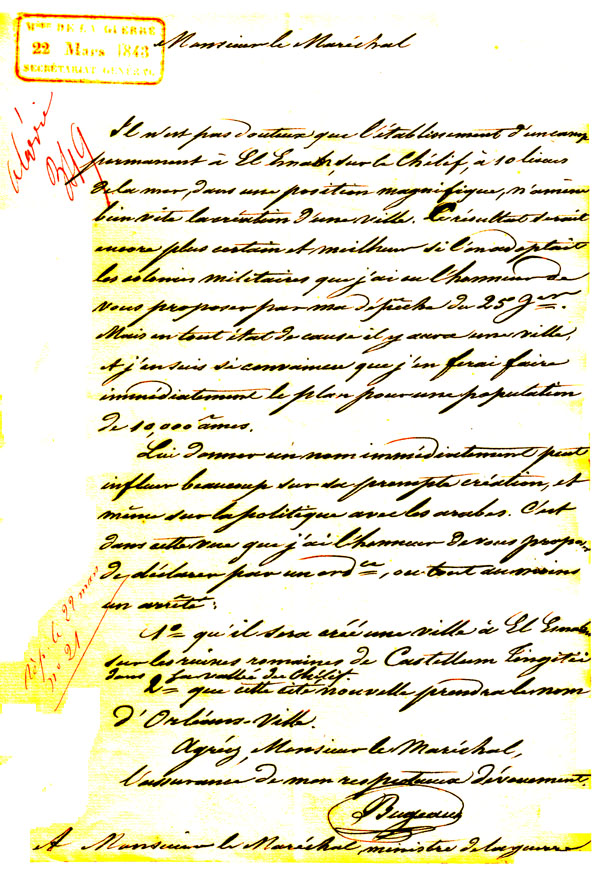 Mère DE LA GUERRE
22 Mars 1843
SECRÉTARIAT GÉNÉRAL
Monsieur le Maréchal
Il n'est pas douteux que l'établissement d'un camp
permanent à El Esnab, sur le Chélif, à 10 lieues
de la mer, dans une position magnifique, n'amène
bien vite la création d'une ville. Ce résultat serait
encore plus certain et meilleur si l'on adoptait
les colonies militaires que j'ai eu l'honneur de
vous proposer par ma dépêche du 25 Jer.
Mais en tout état de cause il y aura une ville,
et j'en suis si convaincu que j'en ferai faire
immédiatement le plan pour une population
de 10,000 âmes.
Lui donner un nom immédiatement peut
influer beaucoup sur sa prompte création, et
même sur la politique avec les arabes. C'est
dans cette vue que j'ai l'honneur de vous propo-
de déclarer par un ordce, ou tout au moins
un arrêté :
1o qu'il sera créé une ville à El Esnab
sur les ruines romaines de Castellum Tingitii
dans la vallée du Chélif.
2o que cette cité nouvelle prendra le nom
d'Orléans-Ville.
Agréez, Monsieur le Maréchal,
l'assurance de mon respectueux dévouement.
Bugeaud
A Monsieur le Maréchal, ministre de la guerre
Rép. le 29 mars
no 21